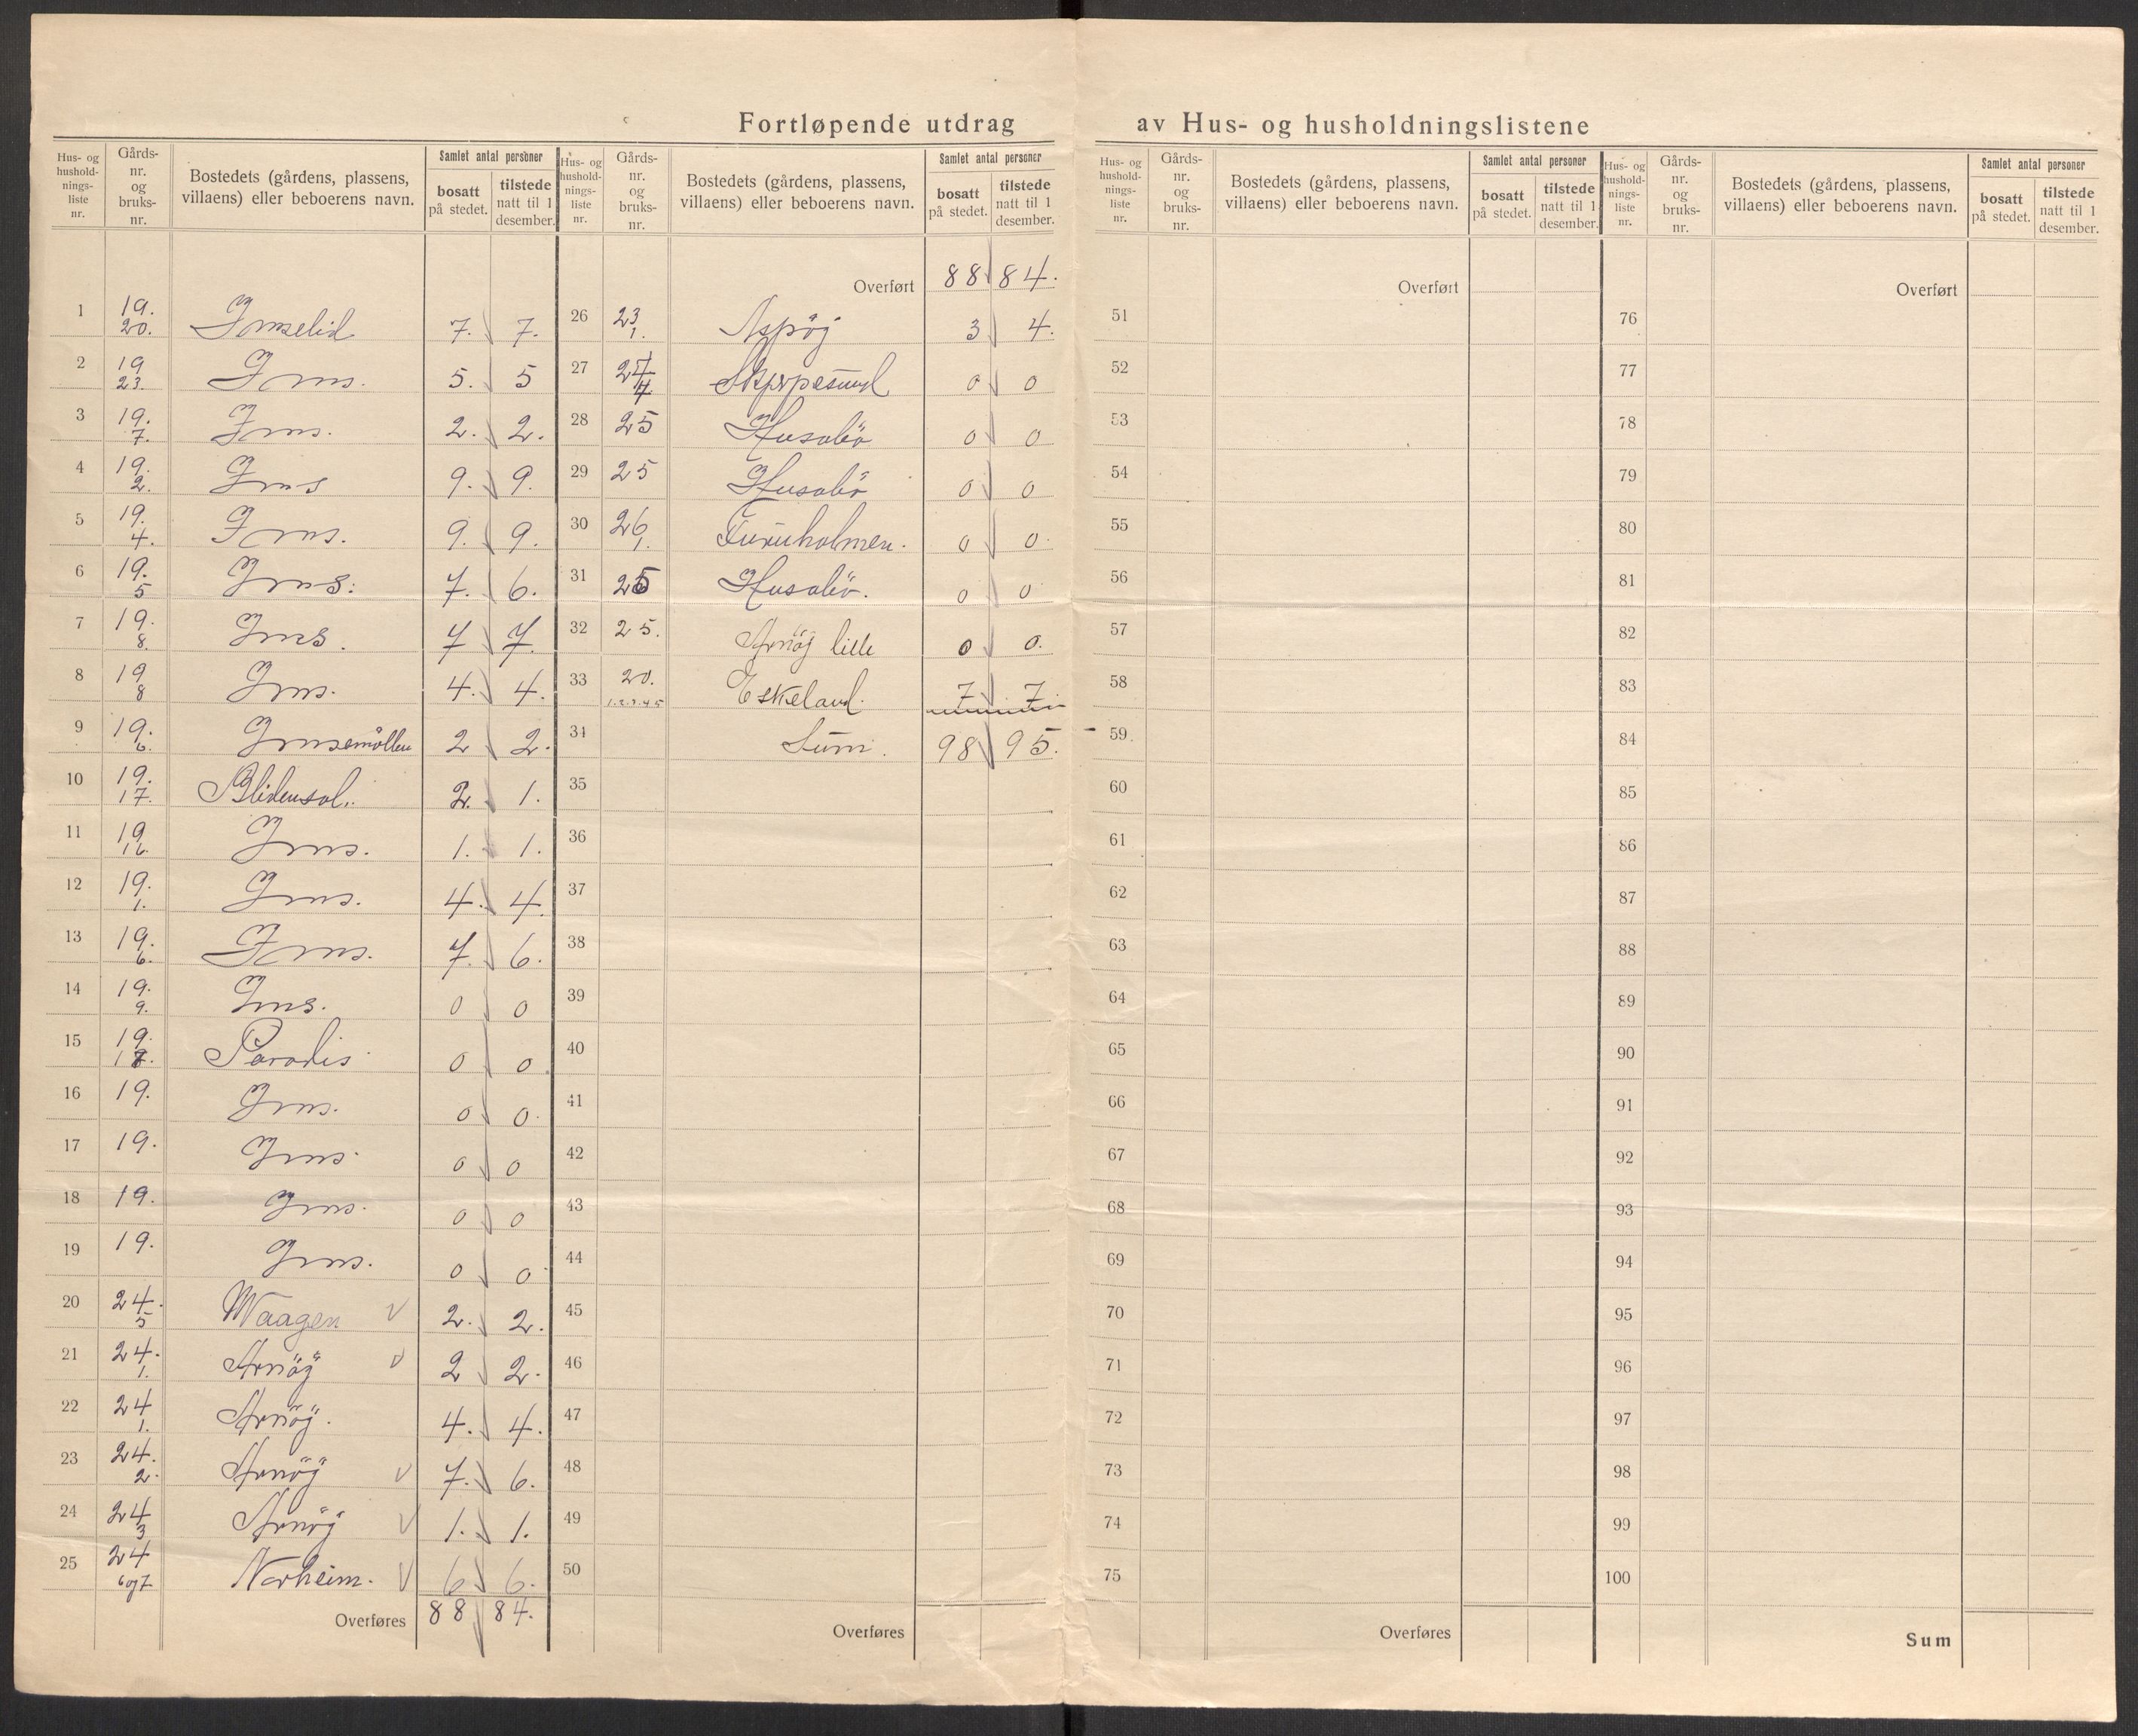 Fortløpende utdrag av Hus- og husholdningslistene
Hus- og hushold-nings-liste nr. | Gårds-nr. og bruks-nr. | Bostedets (gårdens, plassens, villaens) eller beboerens navn. | Samlet antal personer | bosatt på stedet. | tilstede natt til 1 desember.
1 19. 20. Imselid 7. 7.
2 19 23. Ims. 5. 5
3 19. 7. Ims. 2. 2.
4 19. 2. Ims 9. 9.
5 19. 4. Ims. 9. 9.
6 19. 5 Ims. 7. 6.
7 19. 8. Ims. 7 7.
8 19 8 Ims. 4. 4.
9 19. 6. Imsemöllen 2 2.
10 19. 17. Blidensol. 2. 1.
11 19 16. Ims. 1. 1.
12 19. 1. Ims. 4. 4.
13 19. 6. Ims. 7. 6.
14 19. 9. Ims. 0 0
15 19. 18. Paradis 0 0
16 19. Ims. 0 0.
17 19. Ims. 0 0
18 19. Ims. 0 0
19 19. Ims. 0 0
20 24. 5 Waagen V 2. 2.
21 24. 1. Arnöÿ V 2 2.
22 24 1. Arnöÿ. 4. 4.
23 24. 2. Arnöÿ V 7. 6.
24 24 3 Arnöÿ V 1. 1.
25 24 6 og 7 Norheim. V 6 6.
Overføres 88 84.
Hus- og hushold-nings-liste nr. | Gårds-nr. og bruks-nr. | Bostedets (gårdens, plassens, villaens) eller beboerens navn. | Samlet antal personer | bosatt på stedet. | tilstede natt til 1 desember.
Overført 88 84.
26 23 1. Aspöj 3 4.
27 24 4 0 0
28 25 Husabö 0 0
29 25 Husabö 0 0
30 26 1. Furuholmen. 0 0
31 25 Husabö. 0 0
32 25. Arnöj lille 0 0.
33 20. 1.2.3.4.5 Eskeland. 7 7.
34 Sum. 98 95.
35
36
37
38
39
40
41
42
43
44
45
46
47
48
49
50
Overføres
Hus- og hushold-nings-liste nr. | Gårds-nr. og bruks-nr. | Bostedets (gårdens, plassens, villaens) eller beboerens navn. | Samlet antal personer | bosatt på stedet. | tilstede natt til 1 desember.
Overført
51
52
53
54
55
56
57
58
59
60
61
62
63
64
65
66
67
68
69
70
71
72
73
74
75
Overføres
Hus- og hushold-nings-liste nr. | Gårds-nr. og bruks-nr. | Bostedets (gårdens, plassens, villaens) eller beboerens navn. | Samlet antal personer | bosatt på stedet. | tilstede natt til 1 desember.
Overført
76
77
78
79
80
81
82
83
84
85
86
87
88
89
90
91
92
93
94
95
96
97
98
99
100
Sum